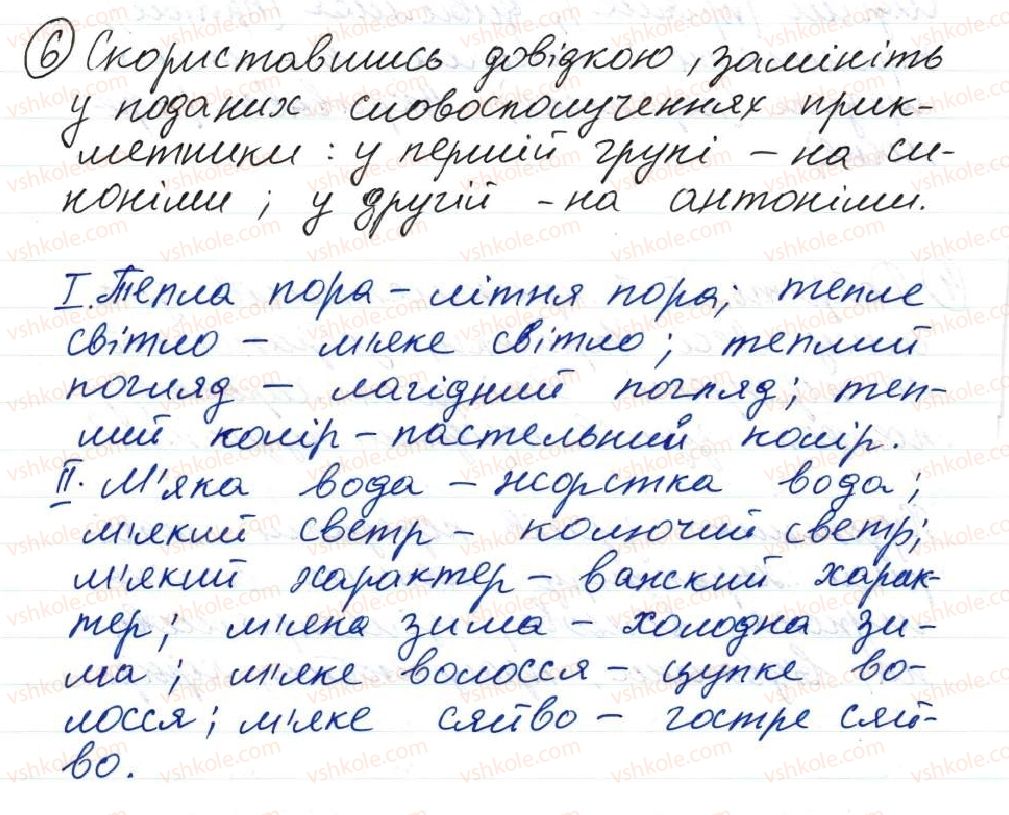 6 Скориставшись довідкою, замініть
у поданих словосполученнях прик-
метники: у першій групі – на си-
ноніми; у другій – на антоніми.
I. Тепла пора – літня пора; тепле
світло – м'яке світло; теплий
погляд – лагідний погляд; теп-
лий колір – пастельний колір.
II. М'яка вода – жорстка вода;
м'який светр – колючий светр;
м'який характер – важкий харак-
тер; м'яка зима – холодна зи-
ма; м'яке волосся – цупке во-
лосся; м'яке сяйво – гостре сяй-
во.